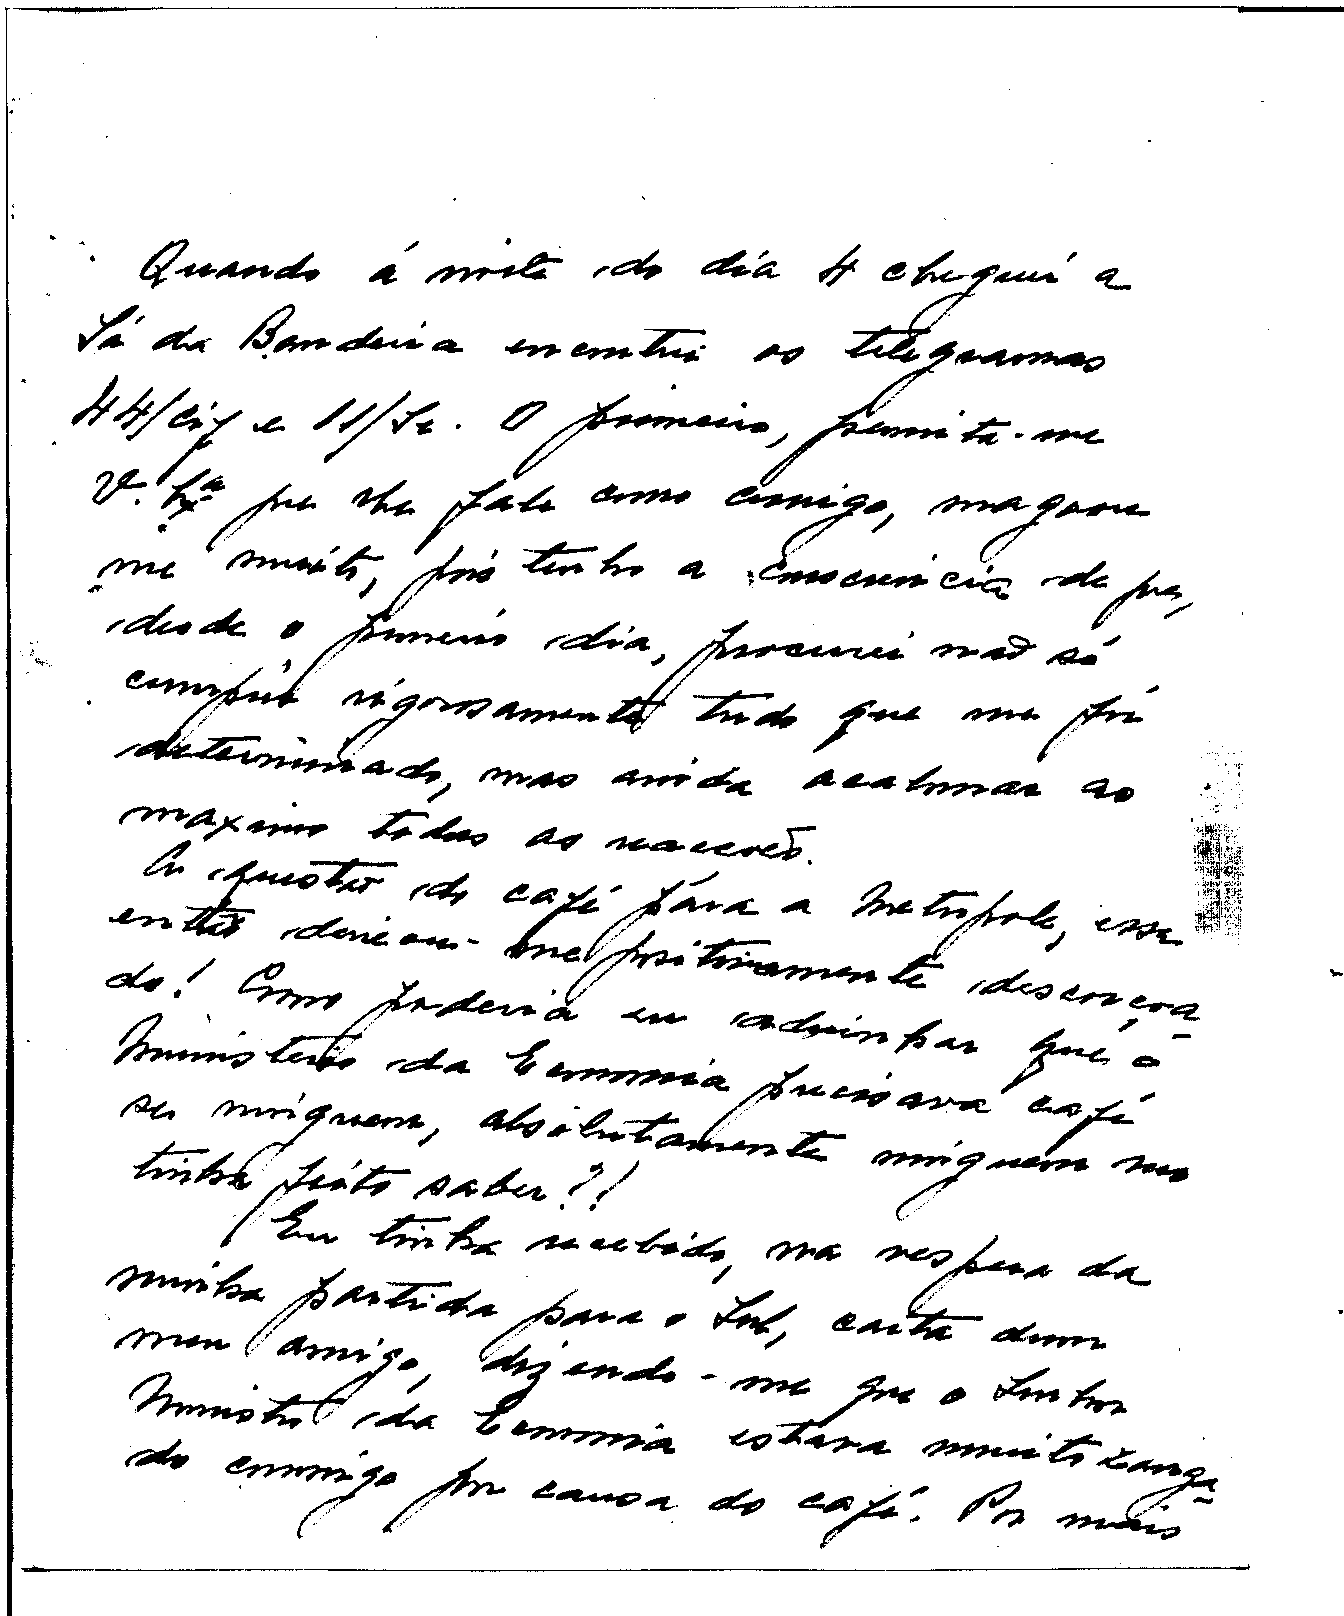 Quando á noite do dia 4 cheguei a
Sá da Bandeira encontrei os telegramas
44/Cif e 11/Se. O primeiro, permita-me
V. Exª que lhe fale como amigo, magoou
me muito, pois tenho a consciencia de que,
desde o primeiro dia, procurei não só
cumprir rigorosamente tudo que me foi
determinado, mas ainda acalmar ao
maximo todas as reacções.
A questão do café para a Metropole, essa
então deixou-me positivamente desconçora-
do! Como poderia eu adivinhar que o
Ministerio da Economia precisava café
se ninguem, absolutamente ninguem mo
tinha feito saber?!
Eu tinha recebido, na vespera da
minha partida para o Sul, carta dum
meu amigo, dizendo-me que o Senhor
Ministro da Economia estava muito zanga-
do comigo por causa do café. Por mais